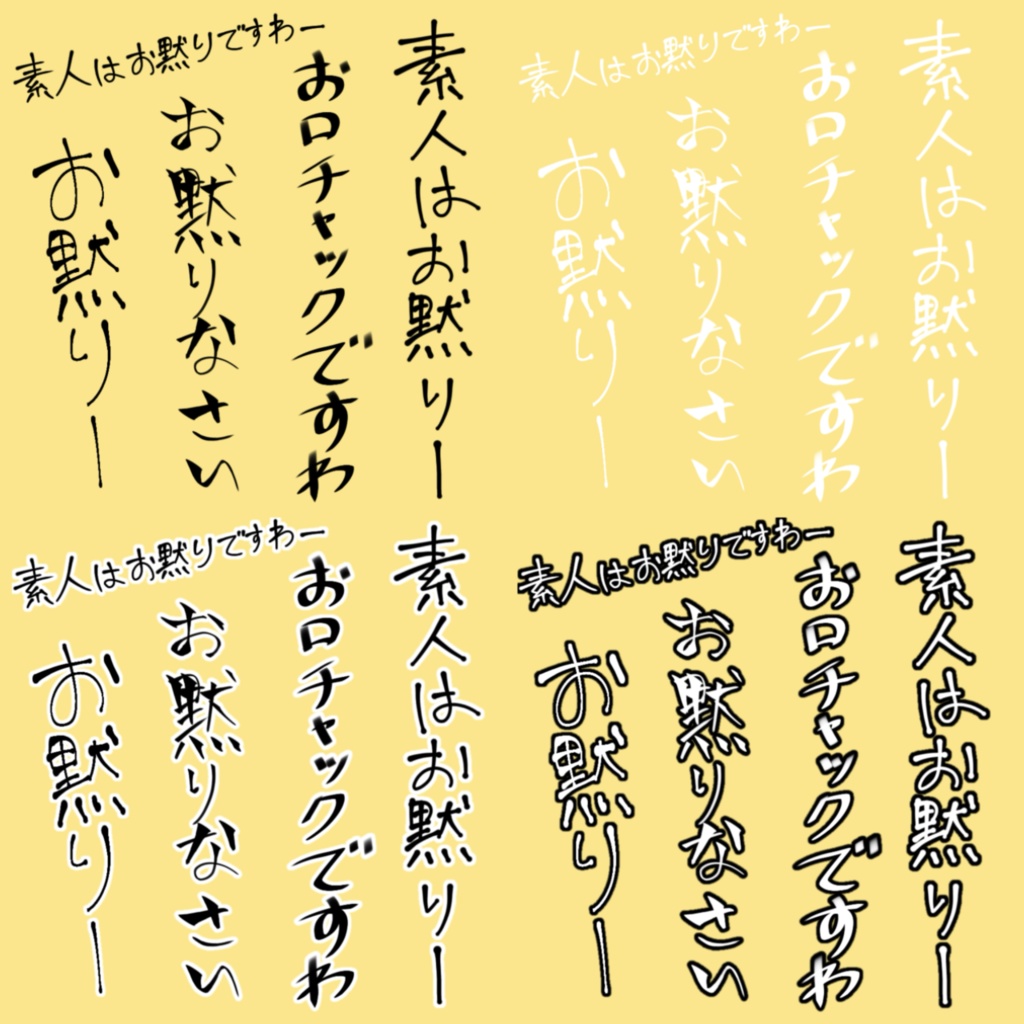 素人はお黙りですわー
素人はお黙りー
お口チャックですわ
お黙りなさい
お黙りー
素人はお黙りですわー
素人はお黙りー
お口チャックですわ
お黙りなさい
お黙りー
素人はお黙りですわー
素人はお黙りー
お口チャックですわ
お黙りなさい
お黙りー
素人はお黙りですわー
素人はお黙りー
お口チャックですわ
お黙りなさい
お黙りー